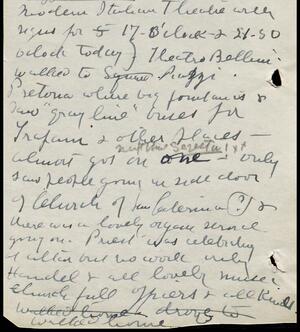 modern Italian Theatre with
signs for 5 17-O'Clock & 21-30
o'clock today) Theatro Bellini
walked to Square Piazzi
Pretoria where big fountain is &
saw "gray line" buses for
Trapani & other places –
almost got on one – only
saw people going in side door
of Church of San Caterina (?) &
there was a lovely organ service
going on. Priest was celebrating
at altar but no work only
Handel & all lovely music
church full officers & all kinds
walked home drove to
walked home